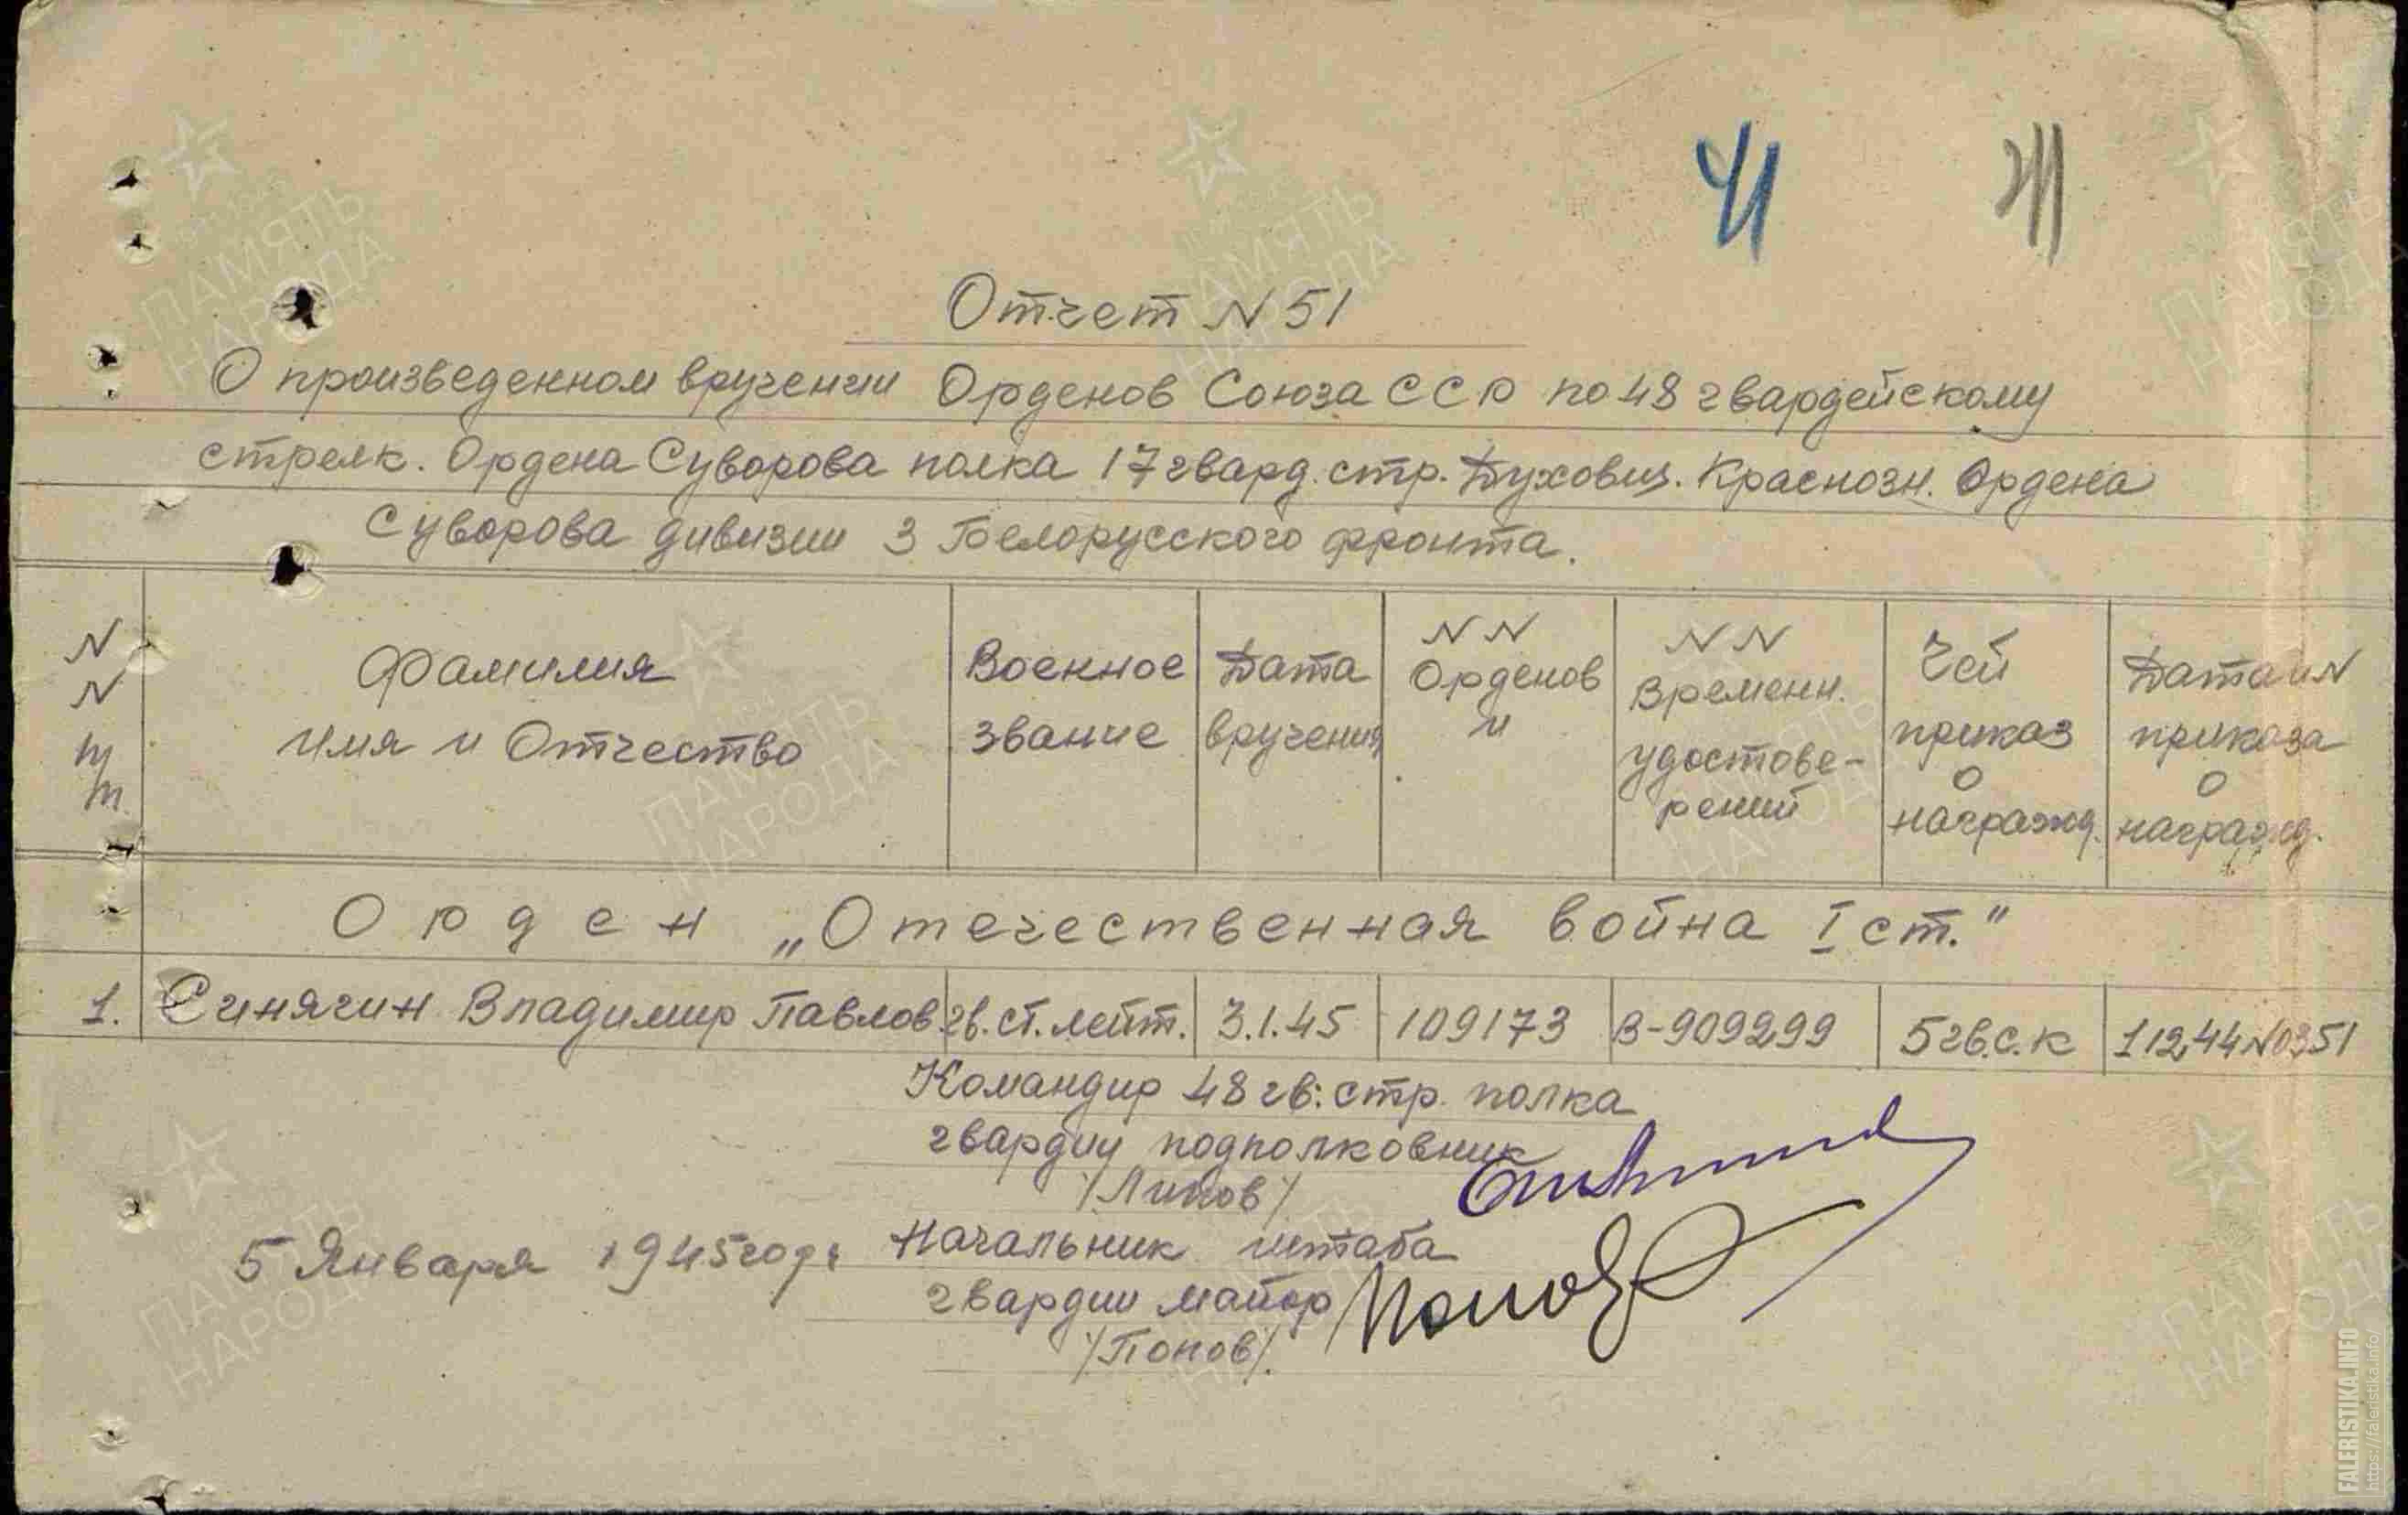 41
Отчет N 51
О произведенном вручении Орденов Союза ССР по 48 гвардейскому
стрелк. Ордена Суворова полка 17 гвард. стр. Духовщ. Краснозн. Ордена
Суворова дивизии 3 Белорусского фронта.
N N п/п
Фамилия имя и Отчество
Военное звание
Дата вручения
N N Орденов и
N N Временн. удостове- рений
Чей приказ о награжд.
Дата и N приказа о награжд.
Орден „Отечественная война I ст."
1. Синягин Владимир Павлов. гв. ст. лейт. 3.1.45 109173 В-909299 5 гв.с.к 1 12,44 N0351
Командир 48 гв. стр. полка
гвардии подполковник
/Липов/
5 Января 1945 года
Начальник штаба
гвардии майор
/Попов/.
ПАМЯТЬ НАРОДА
FALERISTIKA.INFO
https://faleristika.info/